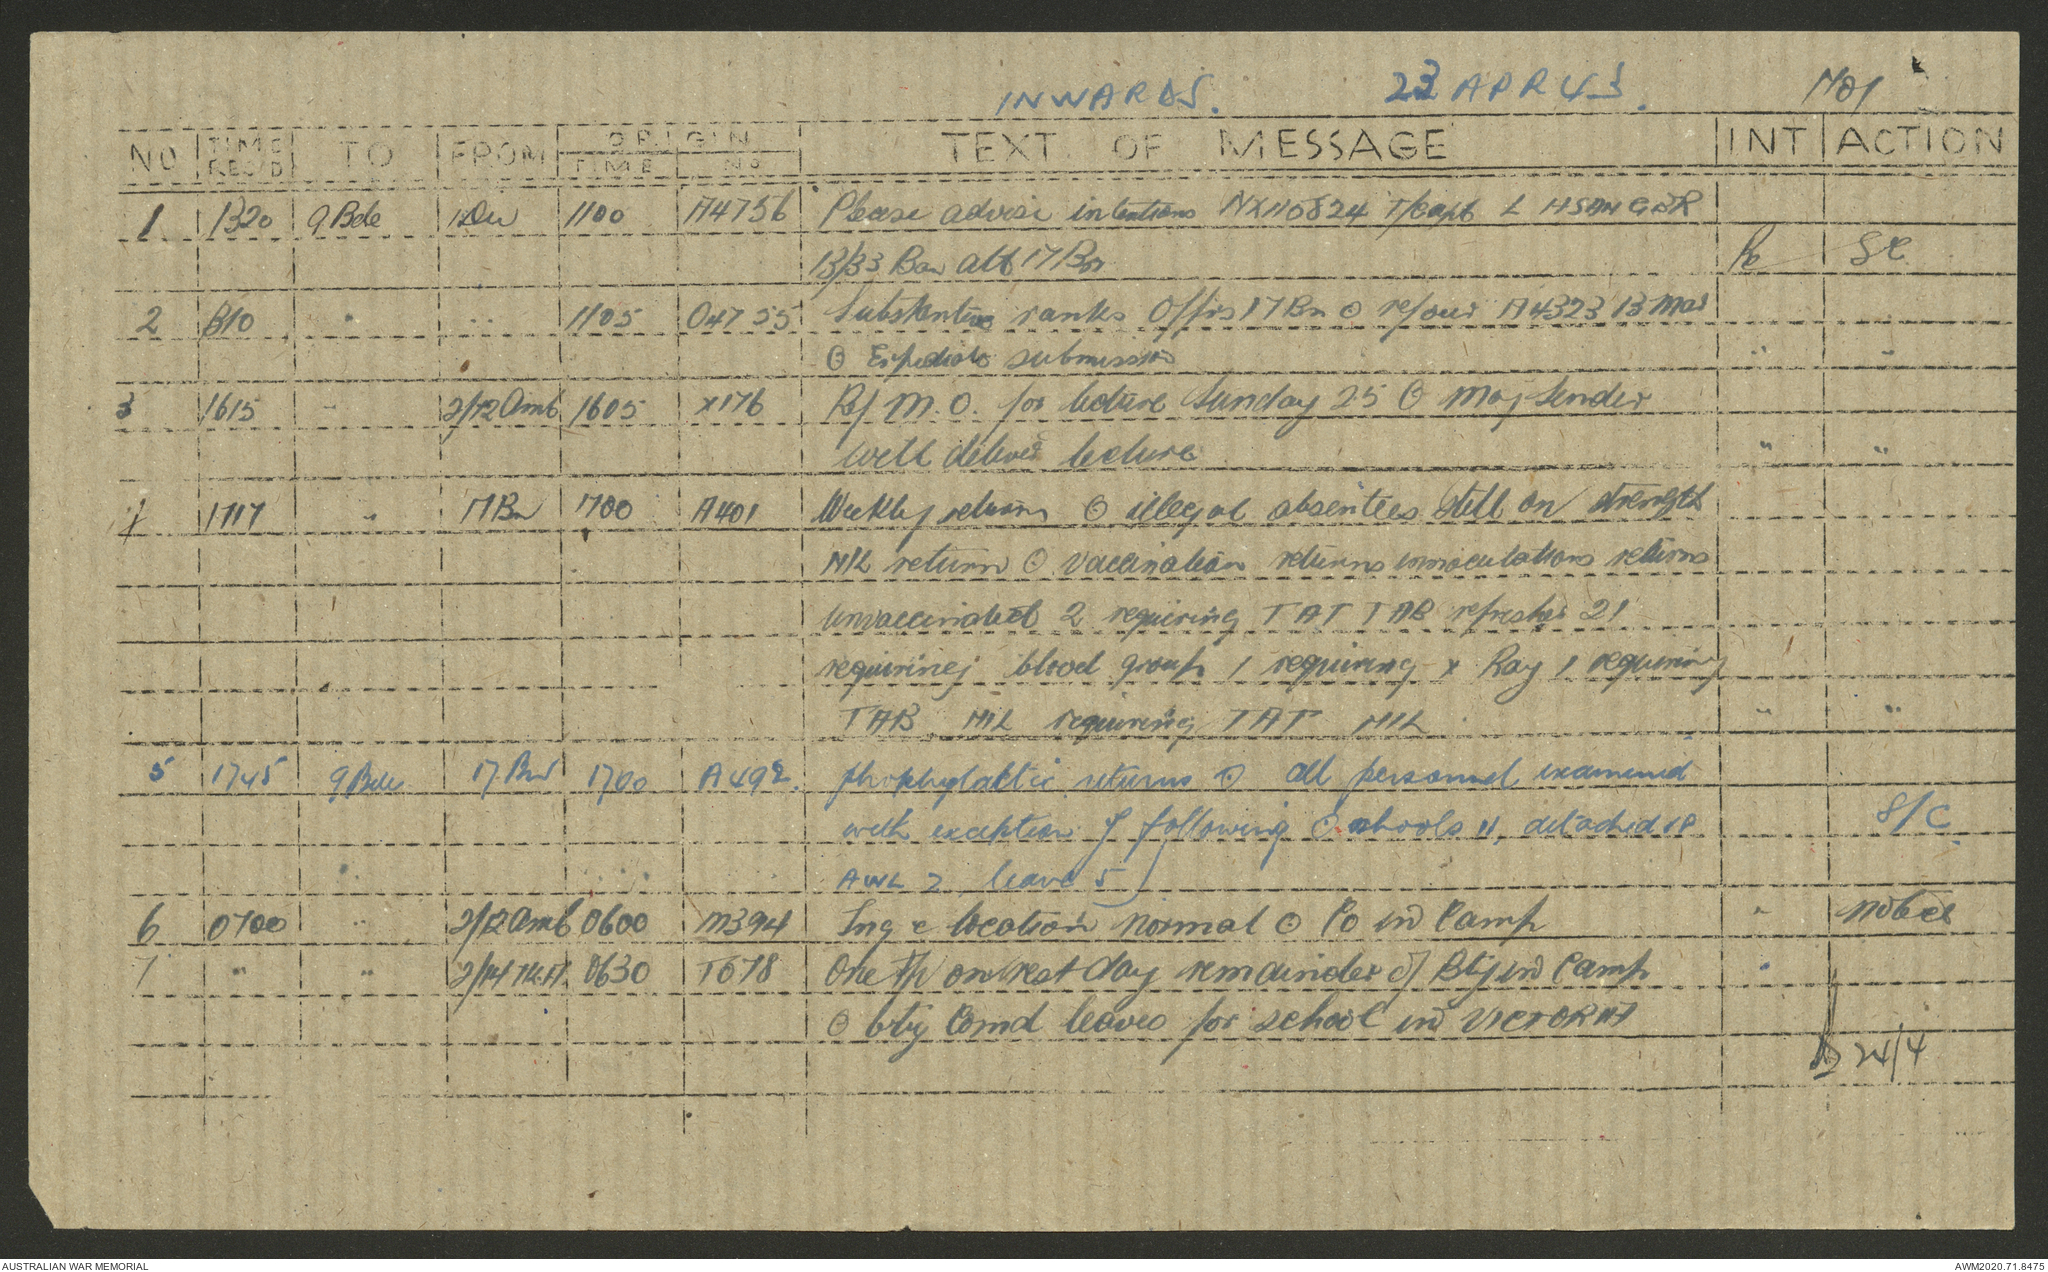 INWARDS. 23 APR 43. No 1
NO TIME REC/D TO FROM ORIGIN TIME NO TEXT OF MESSAGE INT ACTION
1 1320 9 Bde 1 Div 1100 A4756 Please advise intentions NX110824 T/Capt L
13/33 Bn att 17 Bn SC
2 " " 1105 O4755 Substantive ranks Offrs 17 Bn ⊙ refour A4323 13 Mar
⊙ Expedite submission " "
3 1615 " 2/12 Amb 1605 X176 Ref M.O. for lecture Sunday 25 ⊙ Maj Sender
will deliver lecture " "
4 1717 " 17 Bn 1700 A401 Weekly return ⊙ illegal absentees still on strength
NIL return ⊙ Vaccination returns innoculations returns
Unvaccinated 2 requiring TAT TAB refresher 21
requiring blood group 1 requiring x Ray 1 requiring
TAB NIL requiring TAT NIL " "
5 1745 9 Bde 17 Bn 1700 A492. prophylactic returns ⊙ all personnel examined
with exception of following ⊙ schools 11, detached 18 " S/C
AWL 2 leave 5
6 0700 " 2/12 Amb 0600 M394 location normal ⊙ Co in Camp " Noted
7 " " 2/14 0630 T678 One Tp on rest day remainder of Bty in Camp "
⊙ bty Comd leaves for school in VICTORIA
24/4
AUSTRALIAN WAR MEMORIAL AWM2020.71.8475